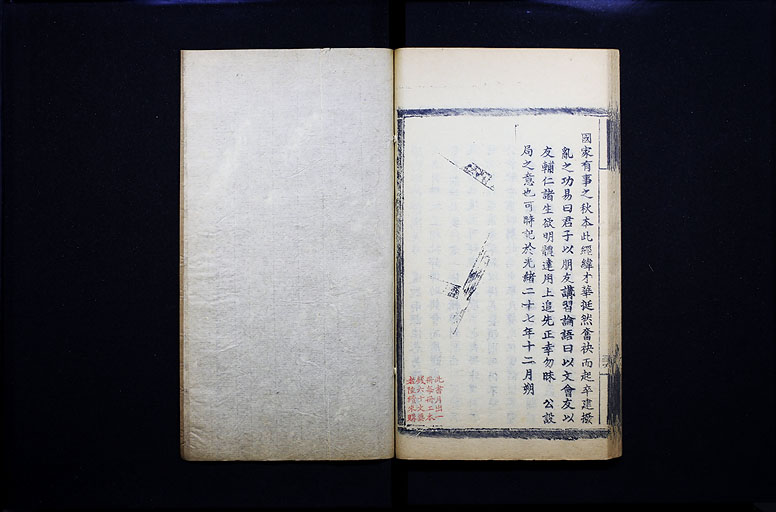 國家有事之秋本此經緯才華挺然奮袂而起卒建撥
亂之功易曰君子以朋友講習論語曰以文會友以
友輔仁諸生欲明體達用上追先正幸勿昧 公設
局之意也可時記於光緒二十七年十二月朔
此書月出一
冊每冊工本
錢六十文樂
者陸續來購